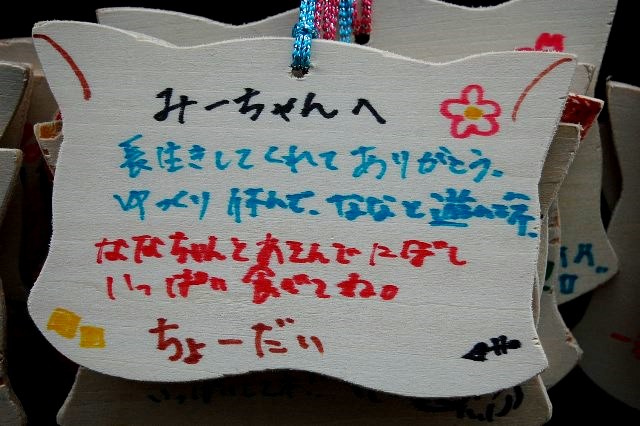 みーちゃんへ
長生きしてくれてありがとう。
ゆっくり休んで、ななと遊んで
ななちゃんとあそんでにぼし
いっぱい食べてね。
ちょーだい